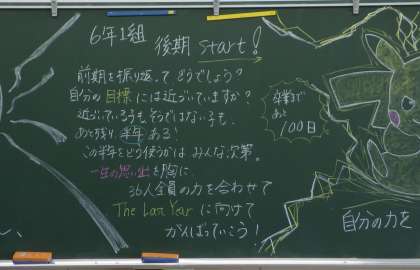 6年1組 後期 start!
前期を振り返って どうでしょう?
自分の 目標 には近づいていますか?
近づいている子も、そうではない子も、
あと残り、半年 ある!
この半年をどう使うかは みんな次第。
一生の思い出を胸に
36人全員の力を合わせて
The Last Year に向けて
がんばっていこう!
卒業まで
あと
100日
自分の力を
い、